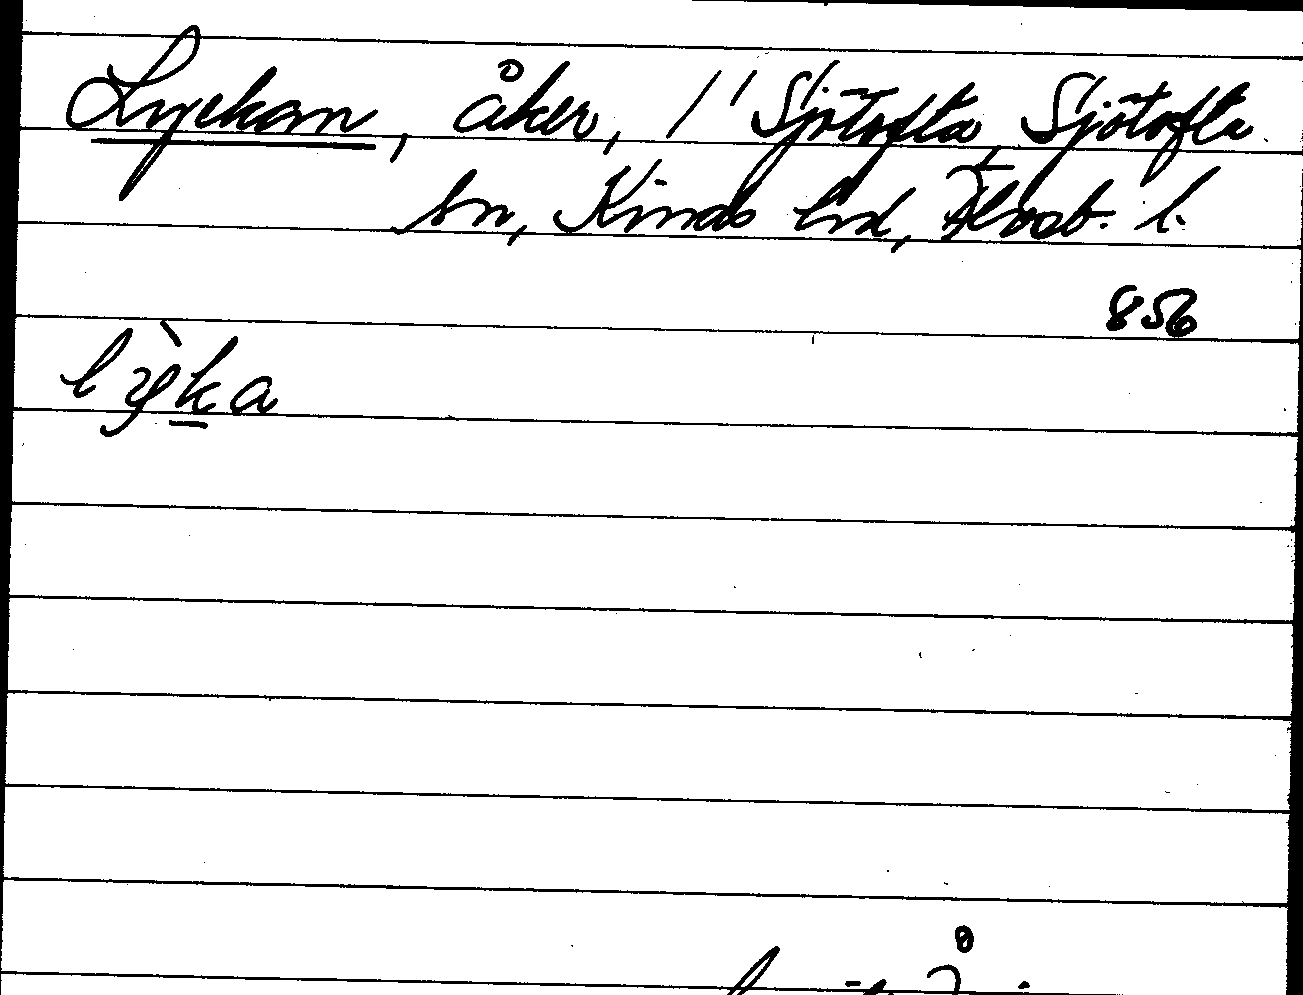 Lyckan, åker, 1' Sjötofta, Sjötofta
sn, Kinds hd, Älvsb. l.
856
lỳka